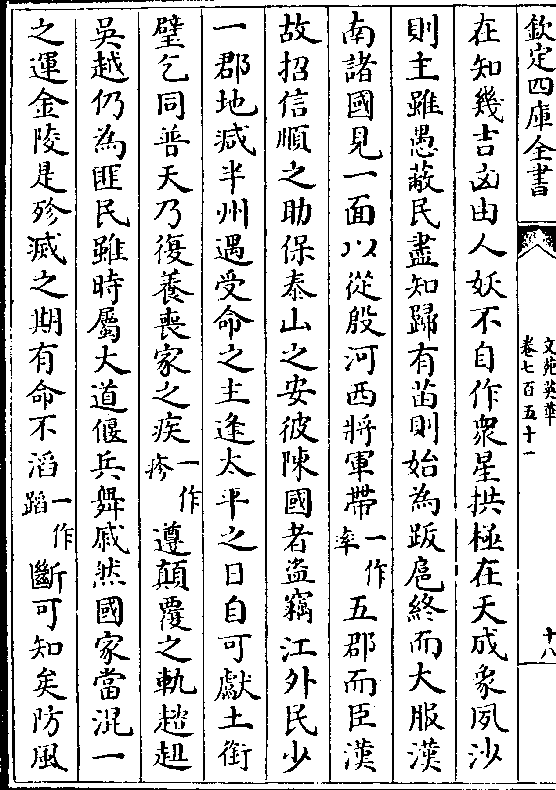 欽定四庫全書
文苑英華
卷七百五十一
十八
在知幾吉凶由人妖不自作衆星拱極在天成象夙沙
則主雖愚蔽民盡知歸有苗則始為跋扈終而大服漢
南諸國見一面以從殷河西將軍帶一作率五郡而臣漢
故招信順之助保泰山之安彼陳國者盗竊江外民少
一郡地減半州遇受命之主逢太平之日自可獻土銜
璧乞同普天乃復養喪家之疾一作疹遵顛覆之軌趑趄
吳越仍為匪民雖時屬大道偃兵舞戚然國家當混一
之運金陵是殄滅之期有命不滔一作蹈斷可知矣防風